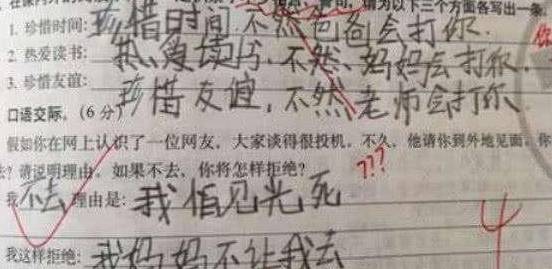 请为以下三个方面各写出一条
1. 珍惜时间: 珍惜时间 不然爸爸会打你.
2. 热爱读书: 热爱读书.不然.妈妈会打你.
3. 珍惜友谊: 珍惜友谊,不然老师会打你
口语交际。(6分)
假如你在网上认识了一位网友,大家谈得很投机,不久,他请你到外地见面,你
去?请说明理由。如果不去,你将怎样拒绝?
???
我不去 理由是: 我怕见光死
4
我这样拒绝: 我妈妈不让我去